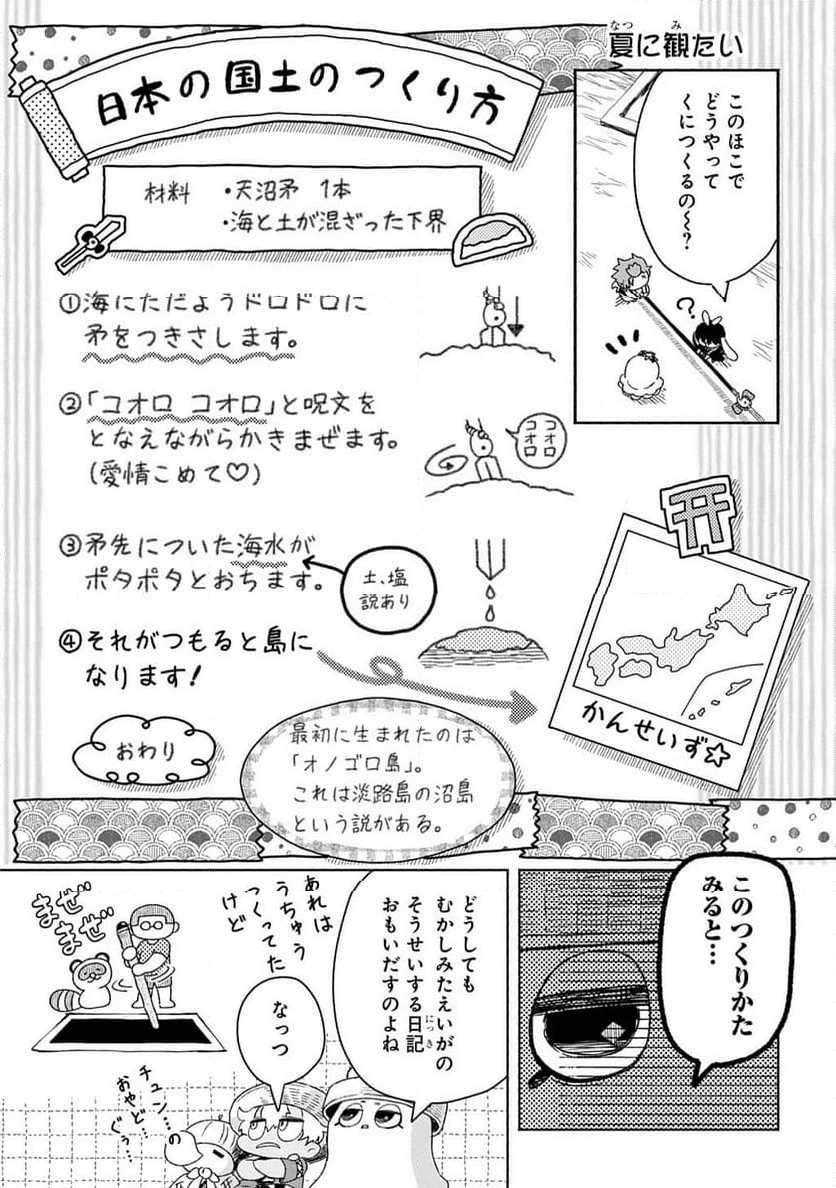 夏に観たい
なつ
み
このほこで
どうやって
くにつくるの〜?
?
日本の国土のつくり方
材料
・天沼矛 1本
・海と土が混ざった下界
①海にただようドロドロに
矛をつきさします。
②「コオロ コオロ」と呪文を
となえながらかきまぜます。
(愛情こめて♡)
コオロ
コオロ
③矛先についた海水が
ポタポタとおちます。
土、塩
説あり
④それがつもると島に
なります!
かんせいず☆
おわり
最初に生まれたのは
「オノゴロ島」。
これは淡路島の沼島
という説がある。
このつくりかた
みると…
どうしても
むかしみたえいがの
そうせいする日記
にっき
おもいだすのよね
なっつ
あれは
うちゅう
つくってた
けど
まぜ
まぜ
チュン…の
おやど…
ぐぅ…